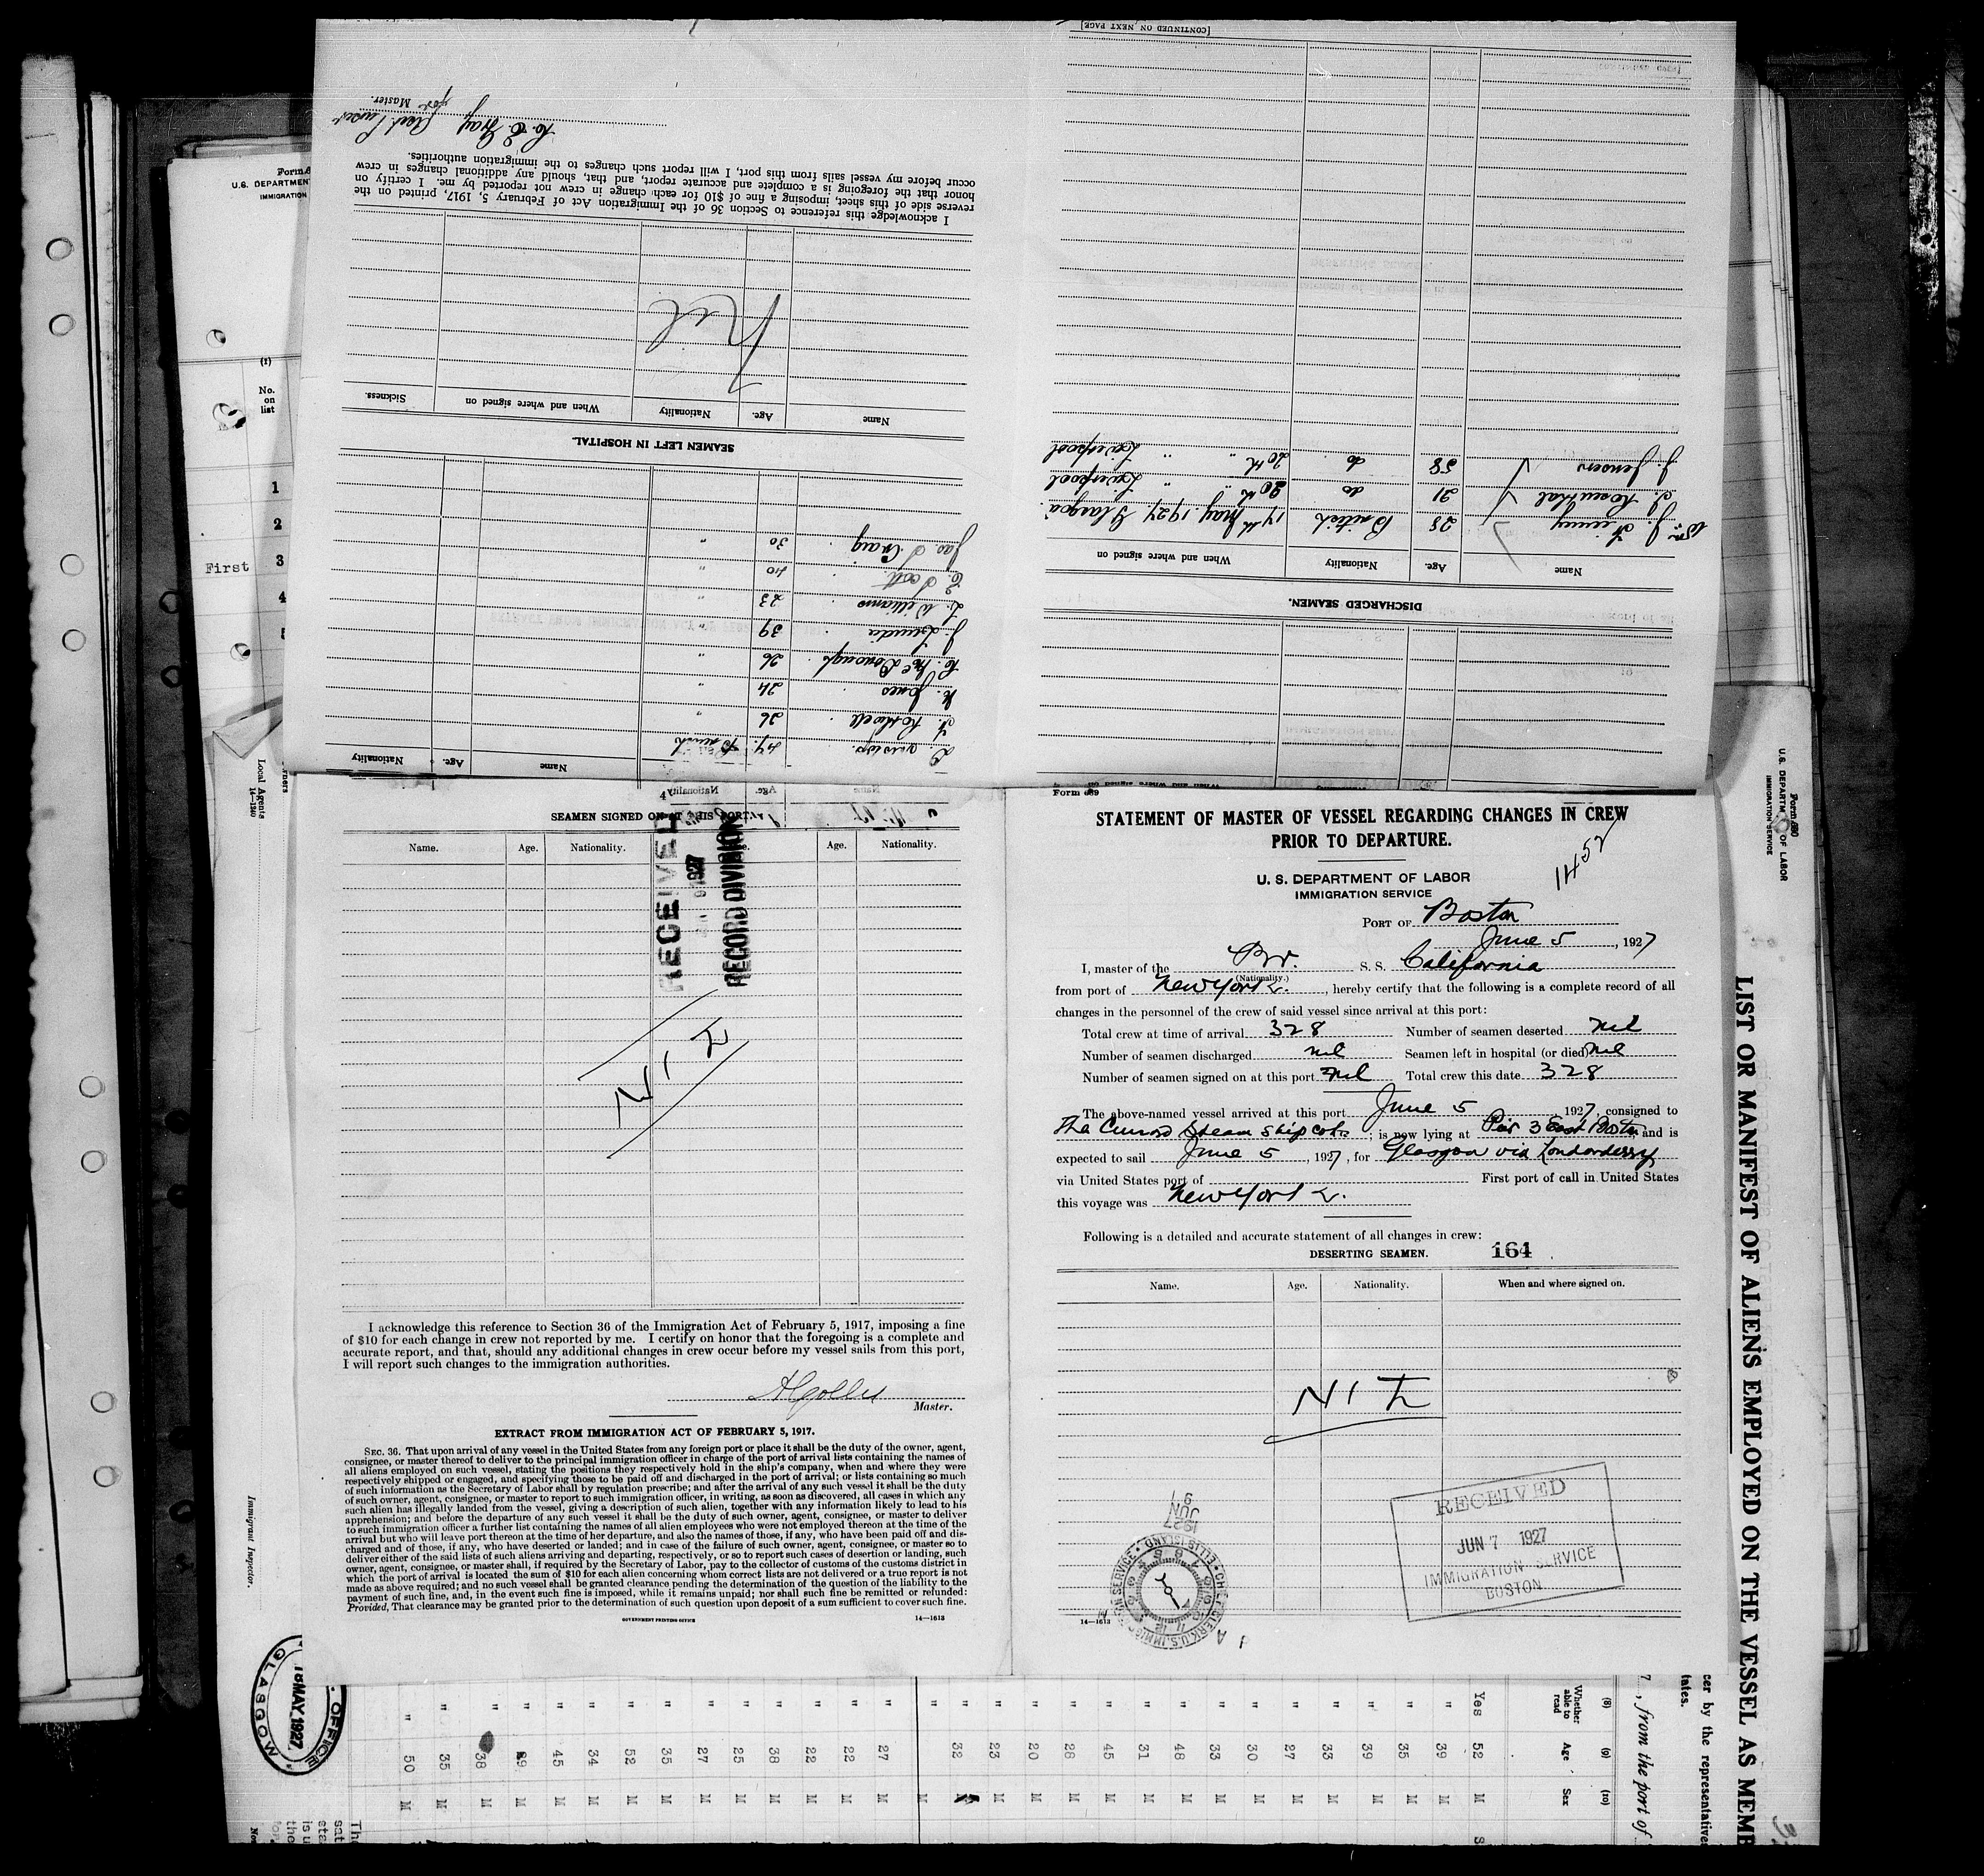 Form 689
STATEMENT OF MASTER OF VESSEL REGARDING CHANGES IN CREW
PRIOR TO DEPARTURE.
1452
U. S. DEPARTMENT OF LABOR
IMMIGRATION SERVICE
PORT OF Boston
June 5, 1927
I, master of the Br. S. S. California
(Nationality.)
from port of New York, hereby certify that the following is a complete record of all
changes in the personnel of the crew of said vessel since arrival at this port:
Total crew at time of arrival 328 Number of seamen deserted nil
Number of seamen discharged nil Seamen left in hospital (or died) nil
Number of seamen signed on at this port nil Total crew this date 328
The above-named vessel arrived at this port June 5 1927, consigned to
The Cunard Steam Ship Co; is now lying at Pier 3 East Boston and is
expected to sail June 5, 1927, for Glasgow via Londonderry
via United States port of First port of call in United States
this voyage was New York
Following is a detailed and accurate statement of all changes in crew:
DESERTING SEAMEN. 164
Name. Age. Nationality. When and where signed on.
NIL
RECEIVED
JUN 7 1927
IMMIGRATION SERVICE
BOSTON
1927
JUN
9
CHIEF CLERK U.S. IMMIGRATION SERVICE • ELLIS ISLAND
14—1613
SEAMEN SIGNED ON AT THIS PORT.
Name. Age. Nationality. Age. Nationality.
RECEIVED
9 1927
RECORD DIVISION
NIL
I acknowledge this reference to Section 36 of the Immigration Act of February 5, 1917, imposing a fine
of $10 for each change in crew not reported by me. I certify on honor that the foregoing is a complete and
accurate report, and that, should any additional changes in crew occur before my vessel sails from this port,
I will report such changes to the immigration authorities.
Master.
EXTRACT FROM IMMIGRATION ACT OF FEBRUARY 5, 1917.
SEC. 36. That upon arrival of any vessel in the United States from any foreign port or place it shall be the duty of the owner, agent,
consignee, or master thereof to deliver to the principal immigration officer in charge of the port of arrival lists containing the names of
all aliens employed on such vessel, stating the positions they respectively hold in the ship's company, when and where they were
respectively shipped or engaged, and specifying those to be paid off and discharged in the port of arrival; or lists containing so much
of such information as the Secretary of Labor shall by regulation prescribe; and after the arrival of any such vessel it shall be the duty
of such owner, agent, consignee, or master to report to such immigration officer, in writing, as soon as discovered, all cases in which any
such alien has illegally landed from the vessel, giving a description of such alien, together with any information likely to lead to his
apprehension; and before the departure of any such vessel it shall be the duty of such owner, agent, consignee, or master to deliver
to such immigration officer a further list containing the names of all alien employees who were not employed thereon at the time of the
arrival but who will leave port thereon at the time of her departure, and also the names of those, if any, who have been paid off and dis-
charged and of those, if any, who have deserted or landed; and in case of the failure of such owner, agent, consignee, or master so to
deliver either of the said lists of such aliens arriving and departing, respectively, or so to report such cases of desertion or landing, such
owner, agent, consignee, or master shall, if required by the Secretary of Labor, pay to the collector of customs of the customs district in
which the port of arrival is located the sum of $10 for each alien concerning whom correct lists are not delivered or a true report is not
made as above required; and no such vessel shall be granted clearance pending the determination of the question of the liability to the
payment of such fine, and, in the event such fine is imposed, while it remains unpaid; nor shall such fine be remitted or refunded:
Provided, That clearance may be granted prior to the determination of such question upon deposit of a sum sufficient to cover such fine.
GOVERNMENT PRINTING OFFICE 14—1613
DISCHARGED SEAMEN.
Name Age. Nationality When and where signed on
Wm. J. 28 British 17th May 1927 Glasgow
I. Rosenthal 21 do 20th " " Liverpool
J. Jensen 58 do. 20th " " Liverpool
[CONTINUED ON NEXT PAGE]
Name Age. Nationality
47 British
T. Rothwell 26 "
Jones 24 "
McDonough 26 "
J. 39 "
L. Williams 23 "
Scott 40 "
Jas. S. Craig 30 "
SEAMEN LEFT IN HOSPITAL.
Name Age. Nationality When and where signed on Sickness.
Nil
I acknowledge this reference to Section 36 of the Immigration Act of February 5, 1917, printed on the
reverse side of this sheet, imposing a fine of $10 for each change in crew not reported by me. I certify on
honor that the foregoing is a complete and accurate report, and that, should any additional changes in crew
occur before my vessel sails from this port, I will report such changes to the immigration authorities.
Gray Asst Purser
for Master.
U.S. DEPARTMENT
IMMIGRATION
(1)
No.
on
list
1
2
First 3
4
5
Local Agents
14—1240
Immigrant Inspector.
U.S. DEPARTMENT OF LABOR
IMMIGRATION SERVICE
LIST OR MANIFEST OF ALIENS EMPLOYED ON THE VESSEL AS MEMB
cer by the representatives
tates.
7, from the port of
(8) (9) (10)
Whether able to read Age Sex
Yes 52 M
" 39 M
" 35 M
" 39 M
" 33 M
" 27 M
" 30 M
" 33 M
" 48 M
" 31 M
" 45 M
" 28 M
" 20 M
" 23 M
" 32
" 27 M
" 22 M
" 22 M
" 38 M
" 25 M
" 27 M
" 35 M
" 52 M
" 34 M
" 45 M
" 39 M
" 38 M
" 35 M
" 50 M
OFFICE
18 MAY 1927
GLASGOW